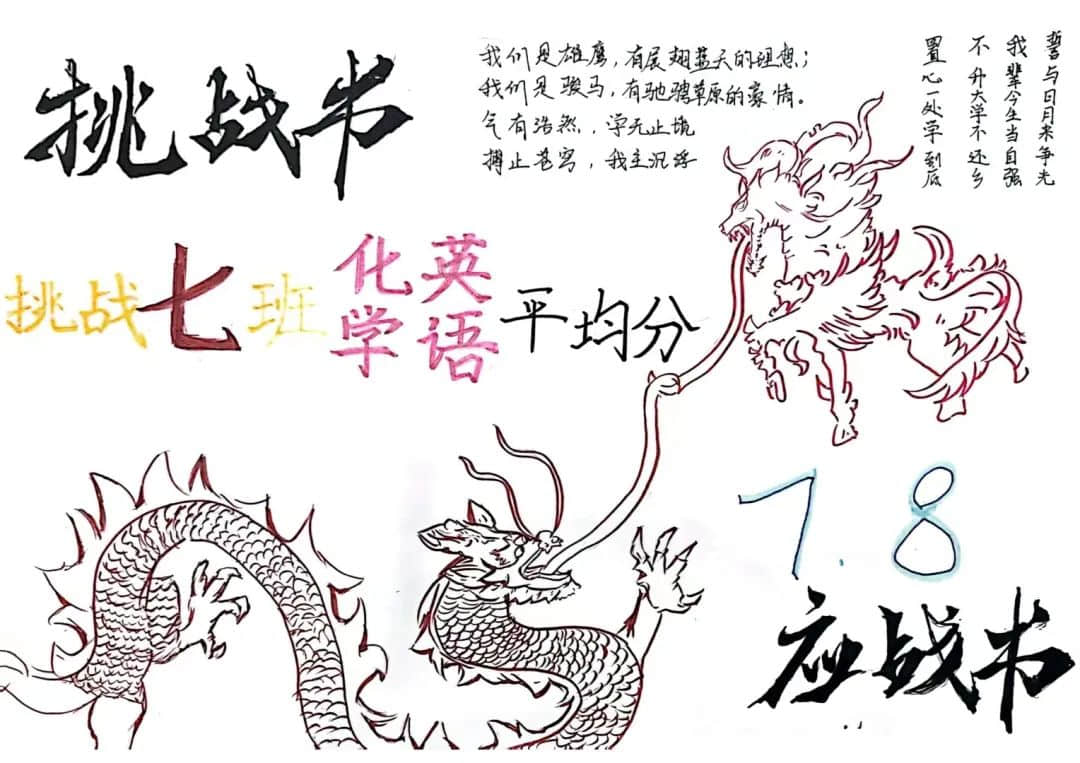 挑战书
我们是雄鹰，有展翅蓝天的理想；
我们是骏马，有驰骋草原的豪情。
气有浩然，学无止境
搏止苍穹，我主沉浮
誓与日月来争光
我辈今生当自强
不升大学不还乡
置心一处学到底
挑战七班化学英语平均分
7.8
应战书